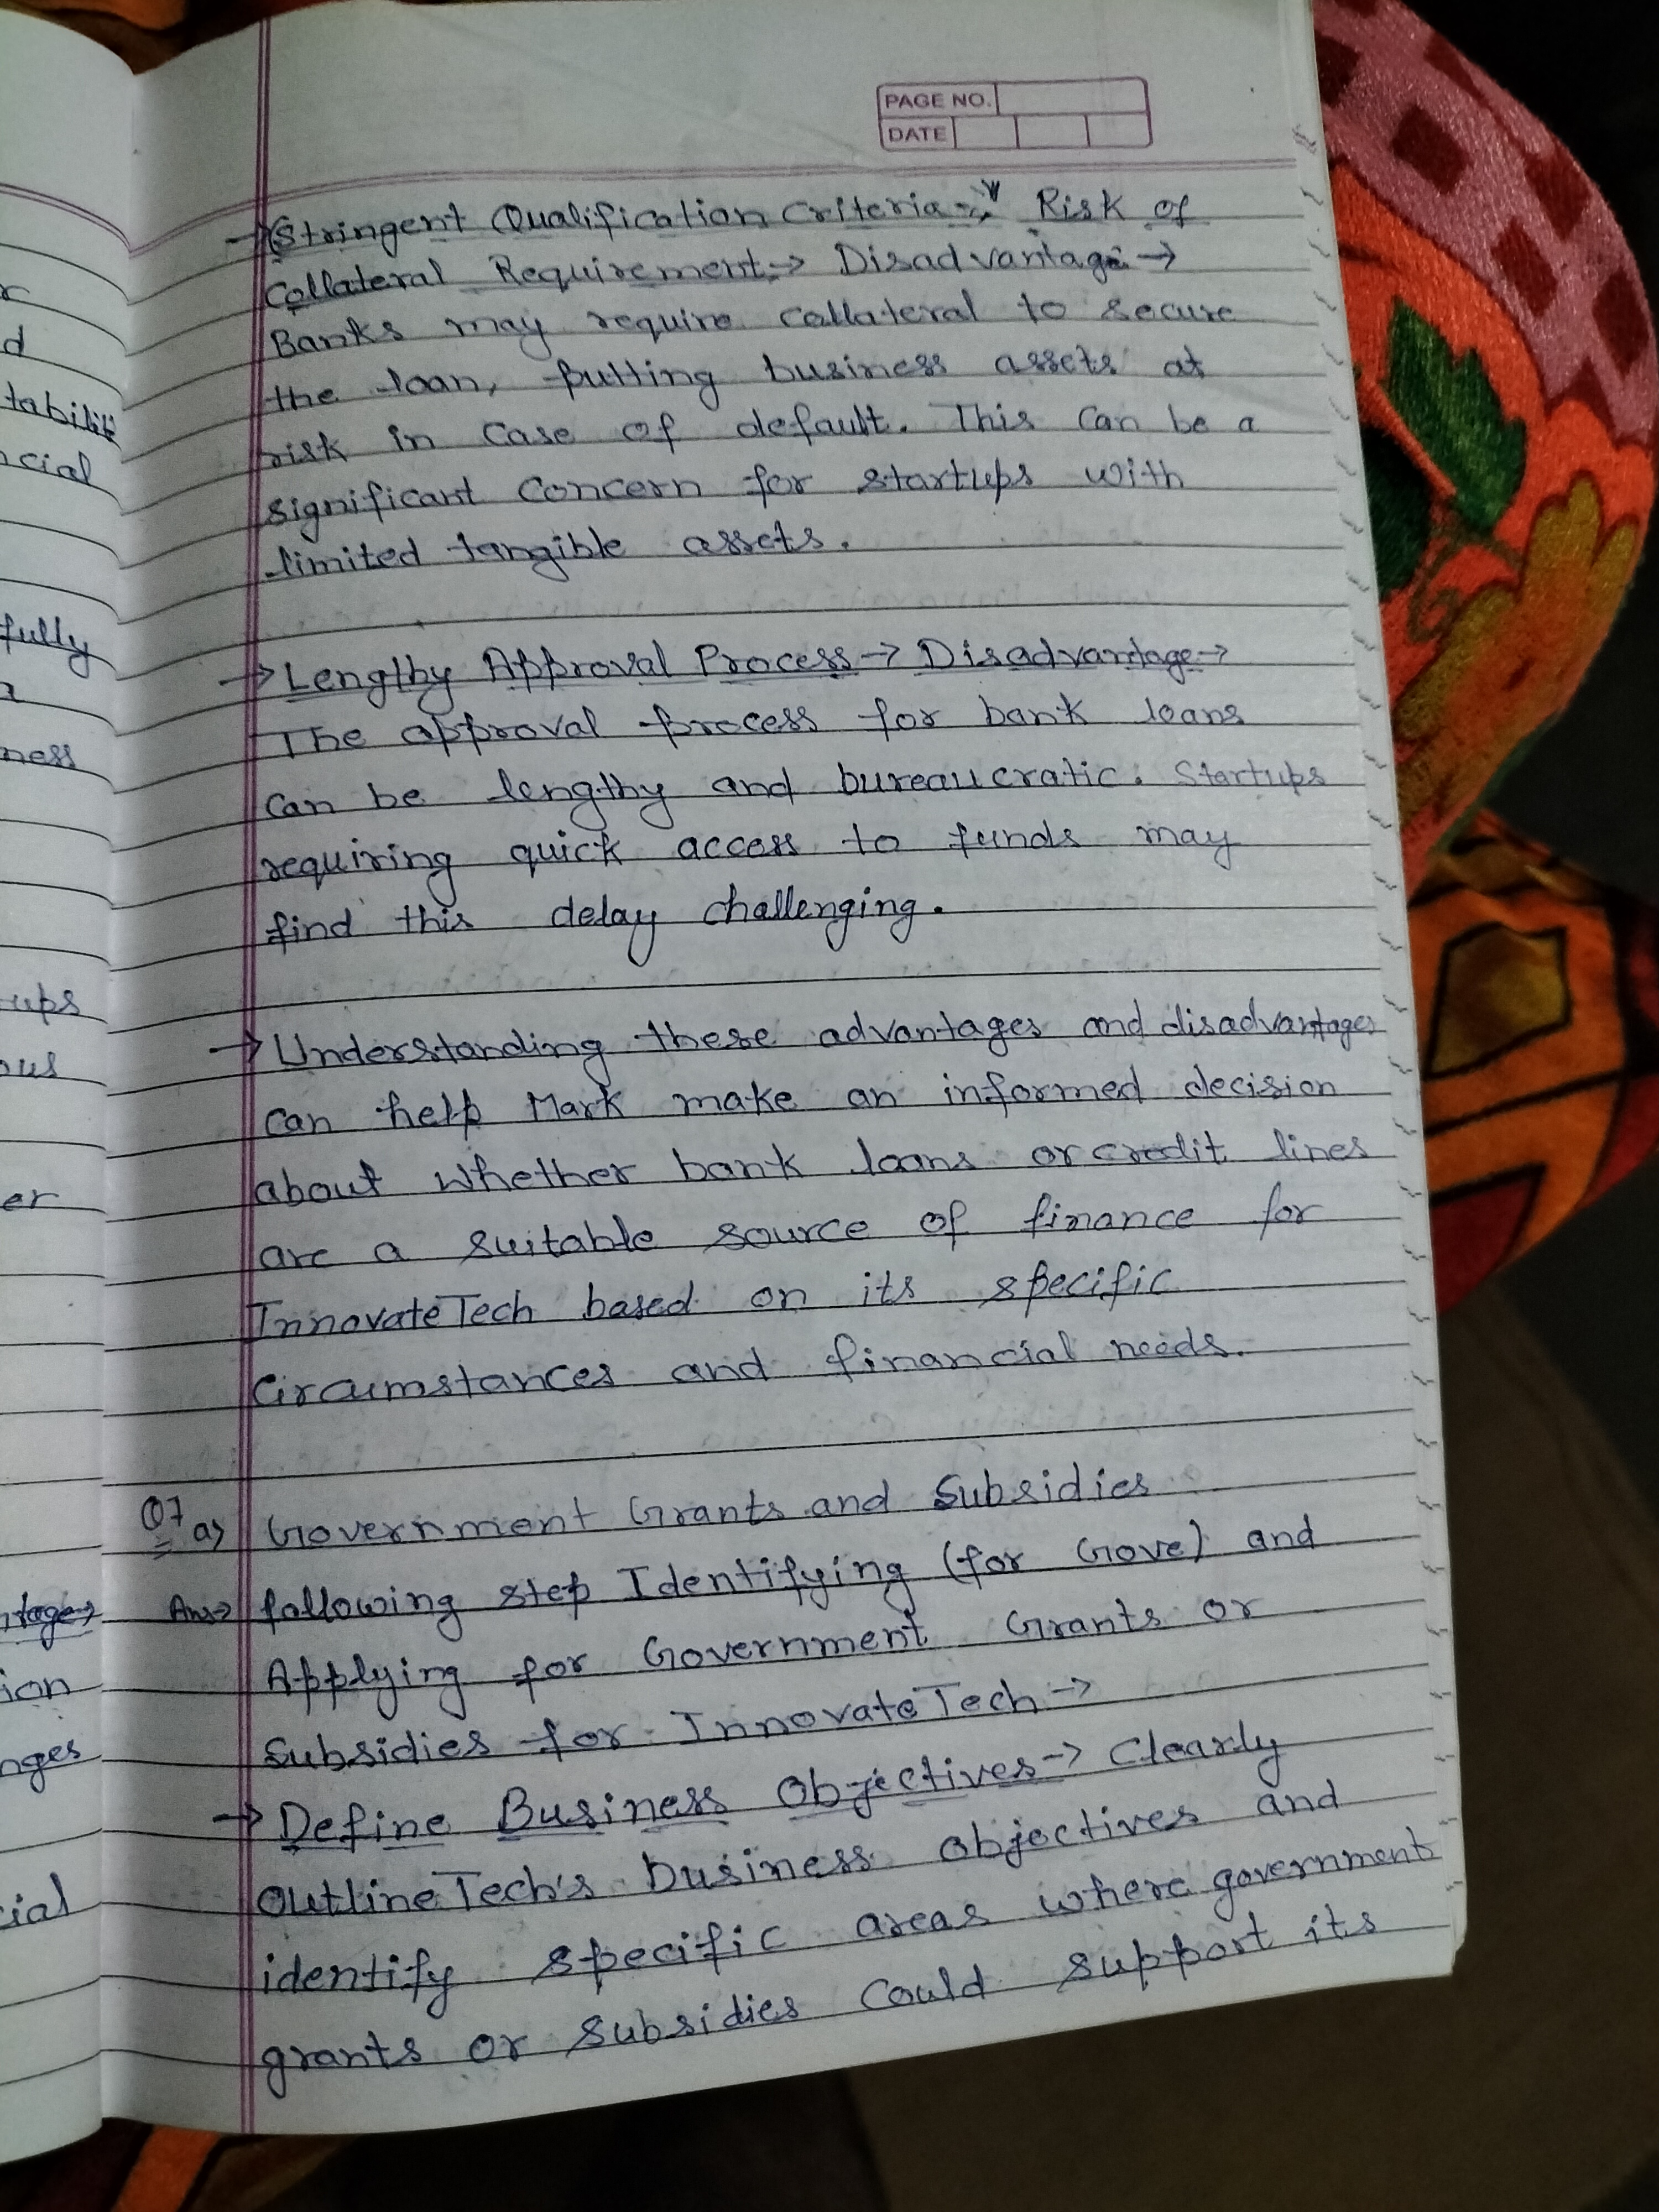 PAGE NO.
DATE
→ Stringent Qualification Criteria → Risk of
Collateral Requirement → Disadvantage →
Banks may require collateral to secure
the loan, putting business assets at
risk in case of default. This can be a
significant concern for startups with
limited tangible assets.
→ Lengthy Approval Process → Disadvantage →
The approval process for bank loans
can be lengthy and bureaucratic. Startups
requiring quick access to funds may
find this delay challenging.
→ Understanding these advantages and disadvantages
can help Mark make an informed decision
about whether bank loans or credit lines
are a suitable source of finance for
InnovateTech based on its specific
circumstances and financial needs.
Q7 a) Government Grants and Subsidies
Ans→ following step Identifying (for Gove) and
Applying for Government Grants or
Subsidies for InnovateTech →
→ Define Business Objectives → Clearly
OutlineTech's business objectives and
identify specific areas where government
grants or subsidies could support its
d
cial
fully
ness
ups
ous
er
ion
nges
cial